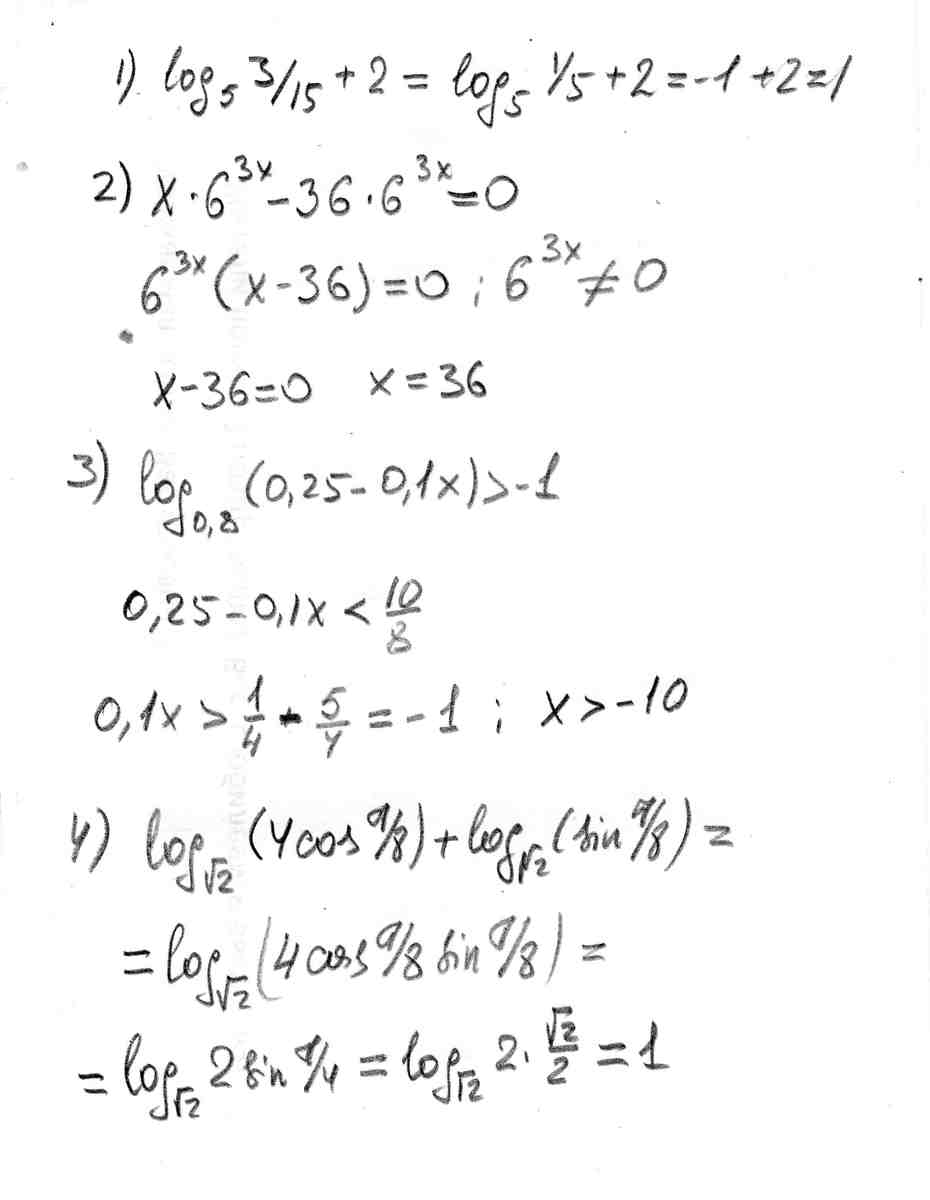 1) log₅ 3/15 + 2 = log₅ 1/5 + 2 = -1 + 2 = 1
2) x · 6³ˣ - 36 · 6³ˣ = 0
6³ˣ (x - 36) = 0 ; 6³ˣ ≠ 0
x - 36 = 0 x = 36
3) log₀,₈ (0,25 - 0,1x) > -1
0,25 - 0,1x < 10/8
0,1x > 1/4 - 5/4 = -1 ; x > -10
4) log_√2 (4 cos π/8) + log_√2 (sin π/8) =
= log_√2 (4 cos π/8 sin π/8) =
= log_√2 2 sin π/4 = log_√2 2 · √2/2 = 1